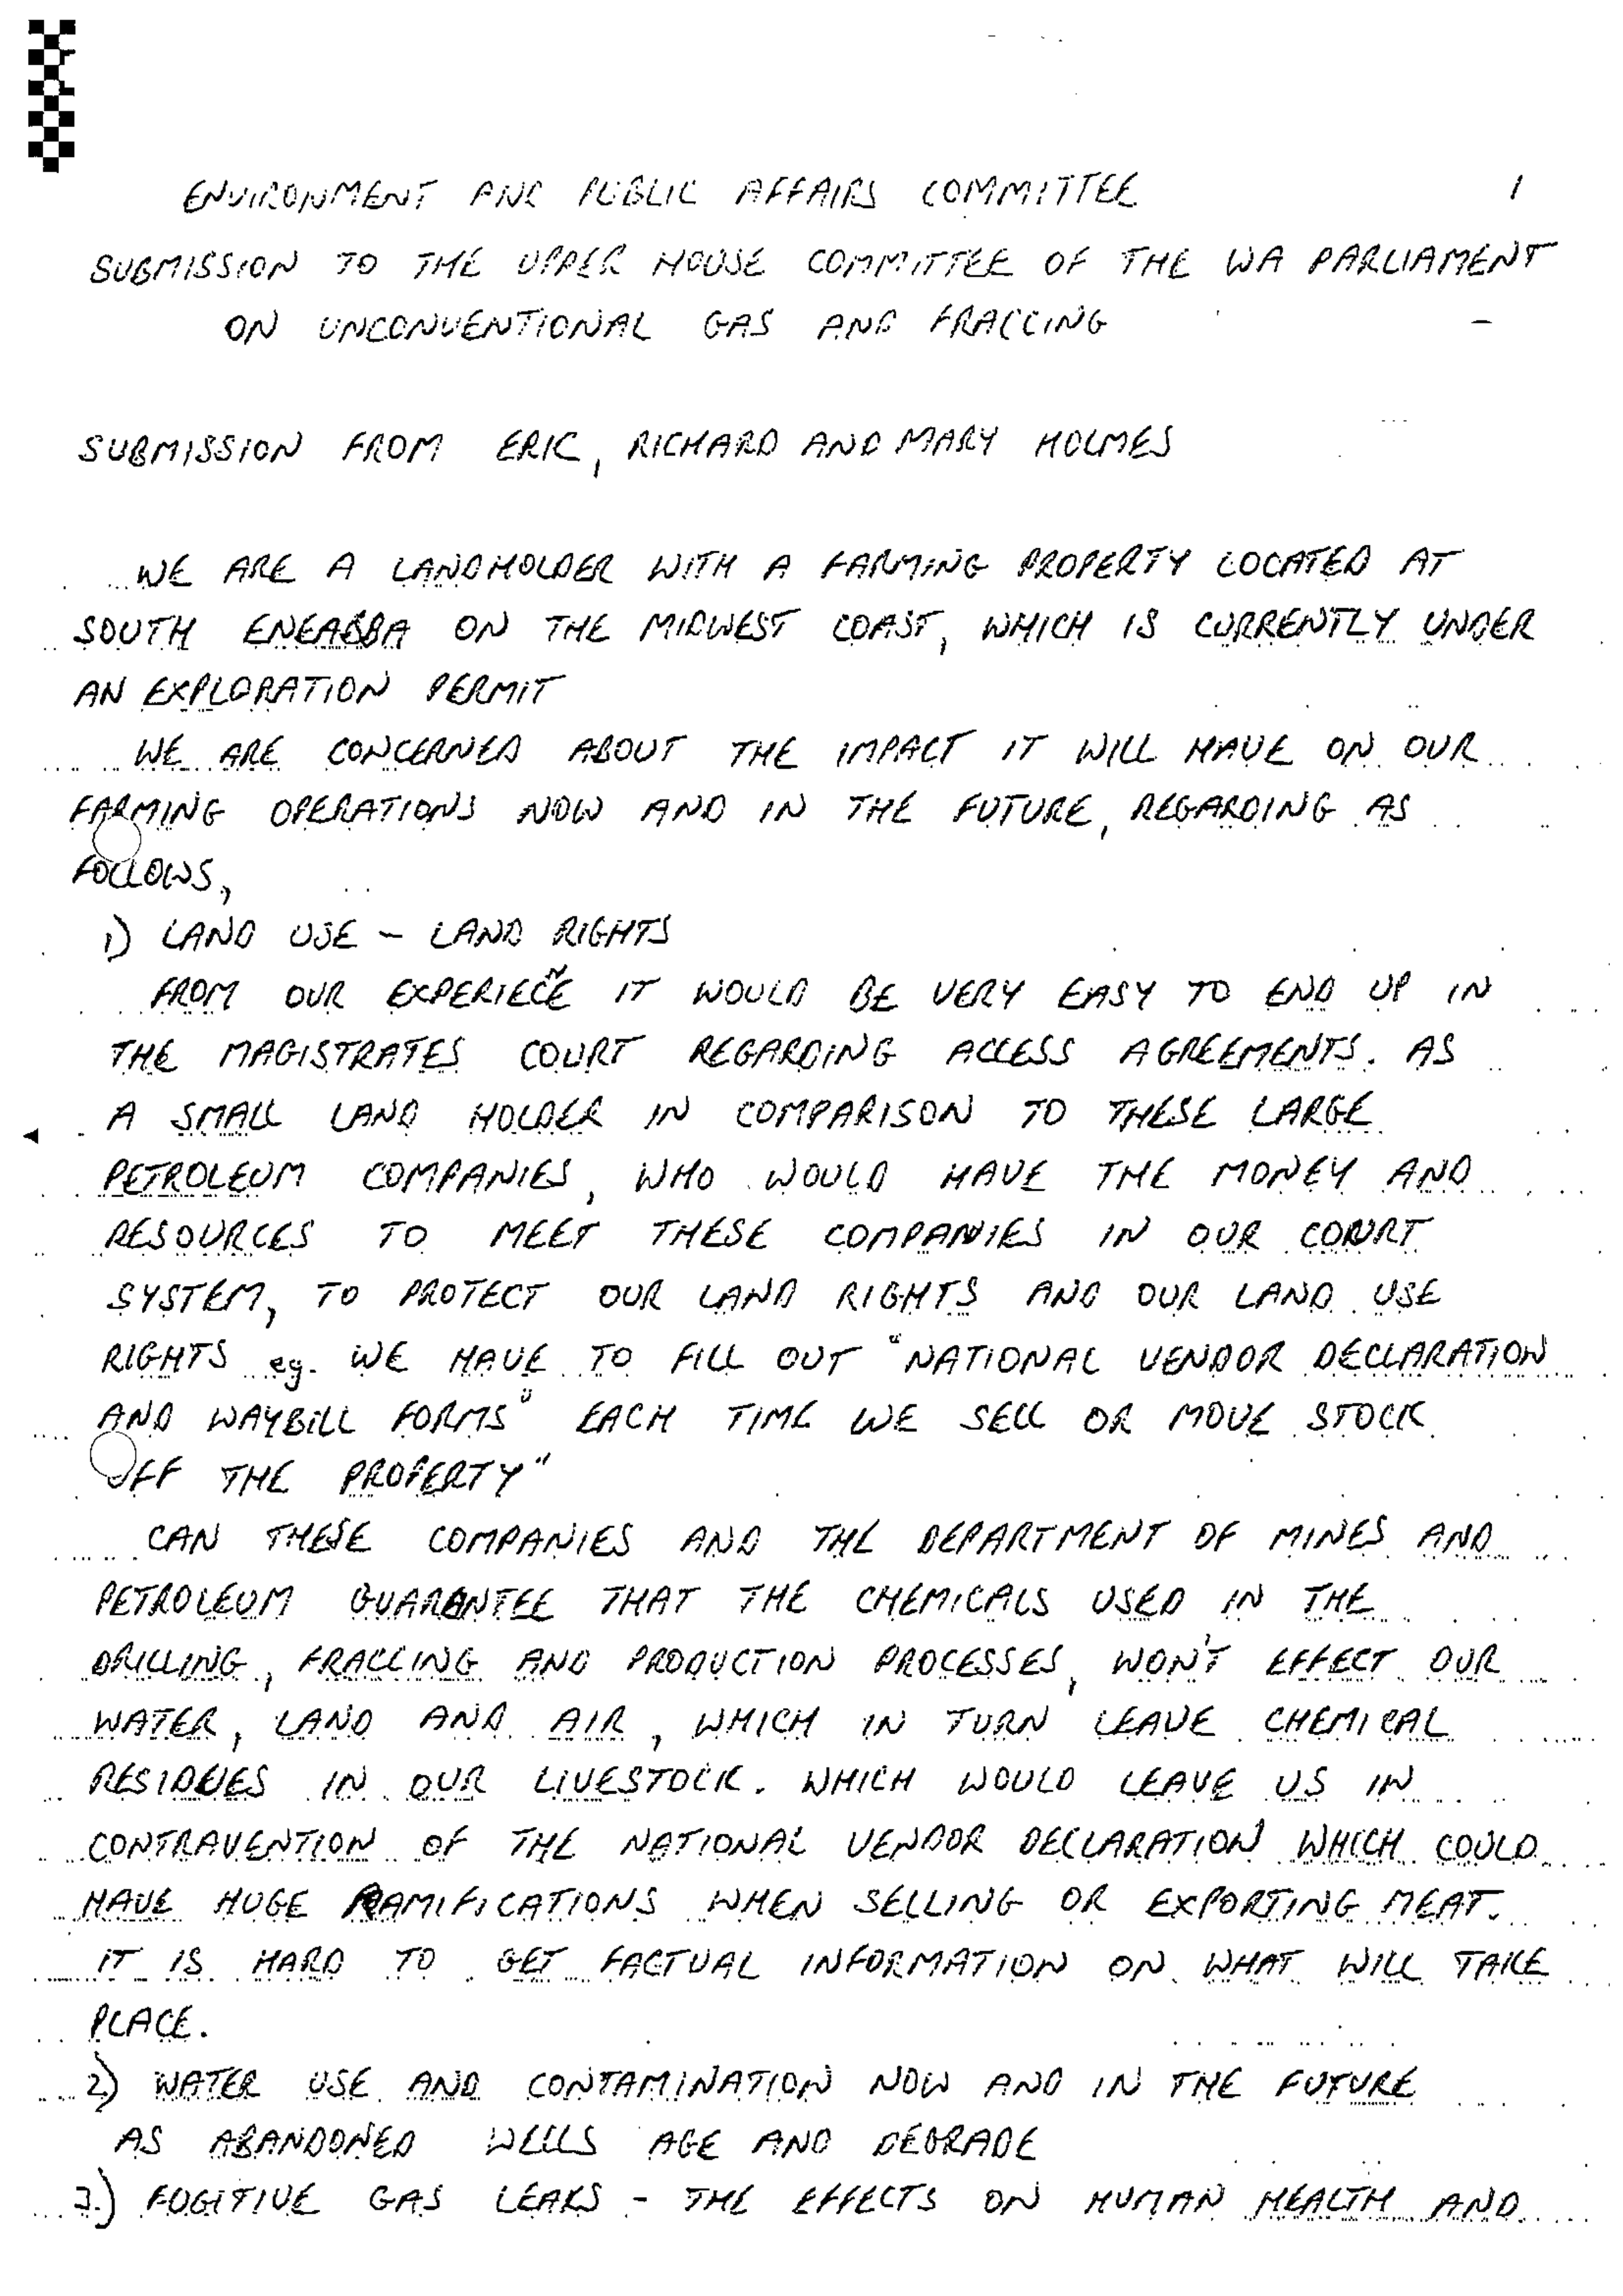 ENVIRONMENT AND PUBLIC AFFAIRS COMMITTEE 1
SUBMISSION TO THE UPPER HOUSE COMMITTEE OF THE WA PARLIAMENT
ON UNCONVENTIONAL GAS AND FRACCING
SUBMISSION FROM ERIC, RICHARD AND MARY HOLMES
WE ARE A LANDHOLDER WITH A FARMING PROPERTY LOCATED AT
SOUTH ENEABBA ON THE MIDWEST COAST, WHICH IS CURRENTLY UNDER
AN EXPLORATION PERMIT
WE ARE CONCERNED ABOUT THE IMPACT IT WILL HAVE ON OUR
FARMING OPERATIONS NOW AND IN THE FUTURE, REGARDING AS
FOLLOWS,
1) LAND USE - LAND RIGHTS
FROM OUR EXPERIENCE IT WOULD BE VERY EASY TO END UP IN
THE MAGISTRATES COURT REGARDING ACCESS AGREEMENTS. AS
A SMALL LAND HOLDER IN COMPARISON TO THESE LARGE
PETROLEUM COMPANIES, WHO WOULD HAVE THE MONEY AND
RESOURCES TO MEET THESE COMPANIES IN OUR COURT
SYSTEM, TO PROTECT OUR LAND RIGHTS AND OUR LAND USE
RIGHTS eg. WE HAVE TO FILL OUT "NATIONAL VENDOR DECLARATION
AND WAYBILL FORMS" EACH TIME WE SELL OR MOVE STOCK
OFF THE PROPERTY"
CAN THESE COMPANIES AND THE DEPARTMENT OF MINES AND
PETROLEUM GUARANTEE THAT THE CHEMICALS USED IN THE
DRILLING, FRACCING AND PRODUCTION PROCESSES, WON'T EFFECT OUR
WATER, LAND AND AIR, WHICH IN TURN LEAVE CHEMICAL
RESIDUES IN OUR LIVESTOCK. WHICH WOULD LEAVE US IN
CONTRAVENTION OF THE NATIONAL VENDOR DECLARATION WHICH COULD
HAVE HUGE RAMIFICATIONS WHEN SELLING OR EXPORTING MEAT.
IT IS HARD TO GET FACTUAL INFORMATION ON WHAT WILL TAKE
PLACE.
2) WATER USE AND CONTAMINATION NOW AND IN THE FUTURE
AS ABANDONED WELLS AGE AND DEGRADE
3.) FUGITIVE GAS LEAKS - THE EFFECTS ON HUMAN HEALTH AND